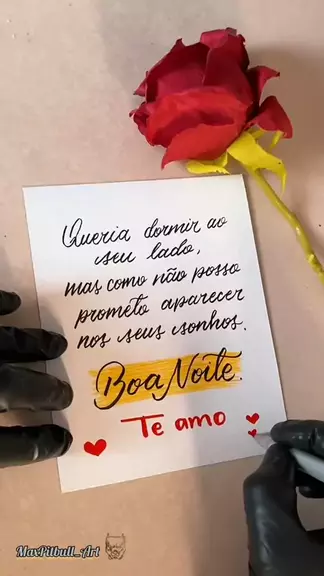 Queria dormir ao
seu lado,
mas como não posso
prometo aparecer
nos seus sonhos.
Boa Noite.
Te amo
MaxPitbull_Art